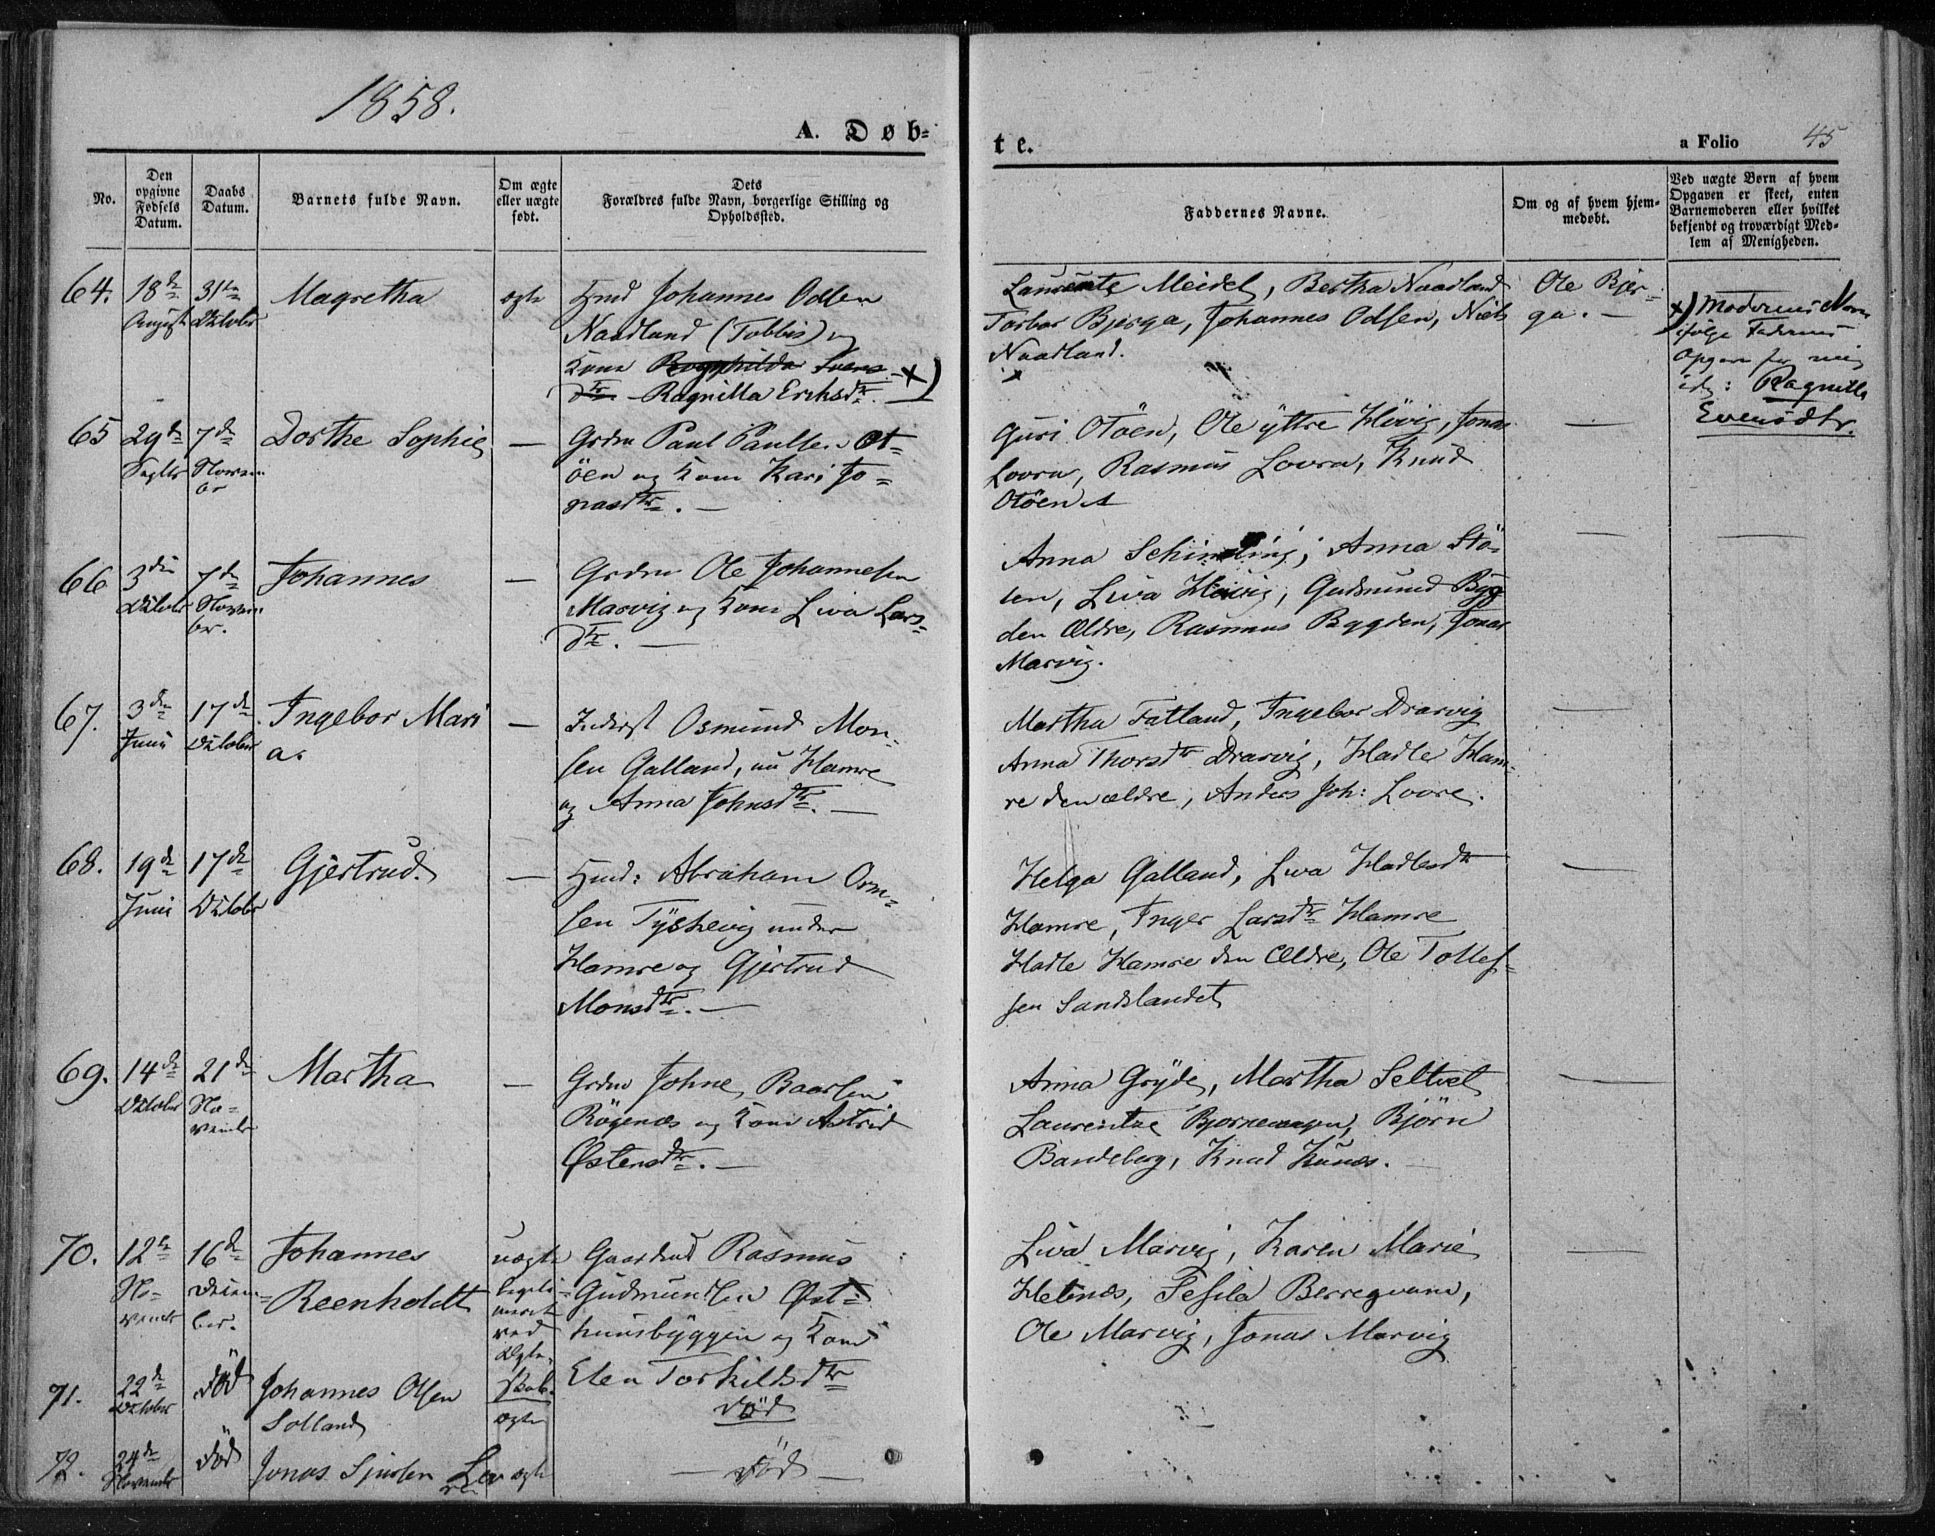 1858.
A. Døb-
te.
a Folio 45
No.
Den
opgivne
Fødsels
Datum.
Daabs
Datum.
Barnets fulde Navn.
Om ægte
eller uægte
født.
Dets
Forældres fulde Navn, borgerlige Stilling og
Opholdssted.
Faddernes Navne.
Om og af hvem hjem-
medøbt.
Ved uægte Børn af hvem
Opgaven er skeet, enten
Barnemoderen eller hvilket
bekjendt og troværdigt Med-
lem af Menigheden.
64.
18de
August
31te
Oktober
Magretha
ægte
Hmd Johannes Odsen
Naadland (Tobbis) og
Kone Ragnhilda Svens- x)
Dtr Ragnilla Eriksdtr.
Laurente Meidel, Bertha Naadland
Torbor Bjerga, Johannes Odsen, Niels
Naadland.
x
Ole Bjer-
ga. —
x) Moderens Navn
ifølge Faderens
Opgave for mig
: Ragnilla
Evensdtr.
65
29de
Septbr
7de
Novem
br
Dorthe Sophie
—
Grdm Paul Paulsen Ot-
öen og Kone Kari Jo-
nasdtr. —
Guri Otöen, Ole yttre Hövig, Jonas
Lovra, Rasmus Lovra, Knud
Otöen
—
66
3die
Oktober
7de
Novem
br.
Johannes
—
Grdm Ole Johannesen
Marvig og Kone Liva Lars-
Dtr. —
Anna Schimeling, Anna Stö-
len, Liva Hövig, Gudmund Byg
den Ældre, Rasmus Bygden, Jonas
Marvig.
—
—
67.
3die
Juni
17de
Oktober
Ingebor Mari
a.
—
Inderst Osmund Mon-
sen Galland, nu Hamre
og Anna Johnsdtr. —
Martha Fatland, Ingebor Drarvig
Anna Thorsdtr Drarvig, Hadle Ham-
re den ældre, Anders Joh: Lovre.
—
68.
19de
Juni
17de
Oktober
Gjertrud.
—
Hmd: Abraham Orm-
sen Tÿshevig under
Hamre og Gjertrud
Monsdtr. —
Helga Galland, Liva Hadlesdtr
Hamre, Inger Larsdtr Hamre
Hadle Hamre den Ældre, Ole Tollef-
sen Sandslandet
—
69.
14de
Oktober
21de
No-
vembr
Martha
—
Grdm Johne Baarsen
Rögenæs og Kone Astrid
Østensdtr. —
Anna Grÿde, Martha Seltvet
Laurentze Bjornevagen, Björn
Bandeberg, Knud Hunæs.
—
70.
12te
No-
vembr
16de
Decem-
ber.
Johannes
Reenholdt
uægte
legeti-
meret
ved
Ægte-
skab.
Gaardmd Rasmus
Gudmundsen Øst-
huusbyggen og Kone
Elen Torkildsdtr
Liva Marvig, Karen Marie
Hebnes, Sesila Berregvam,
Ole Marvig, Jonas Marvig
—
71.
22de
Oktober
Död
Johannes Olsen
Solland
ægte
Död
72.
24de
November
Död
Jonas Sjursen Lov
ra
ægte
— Död —